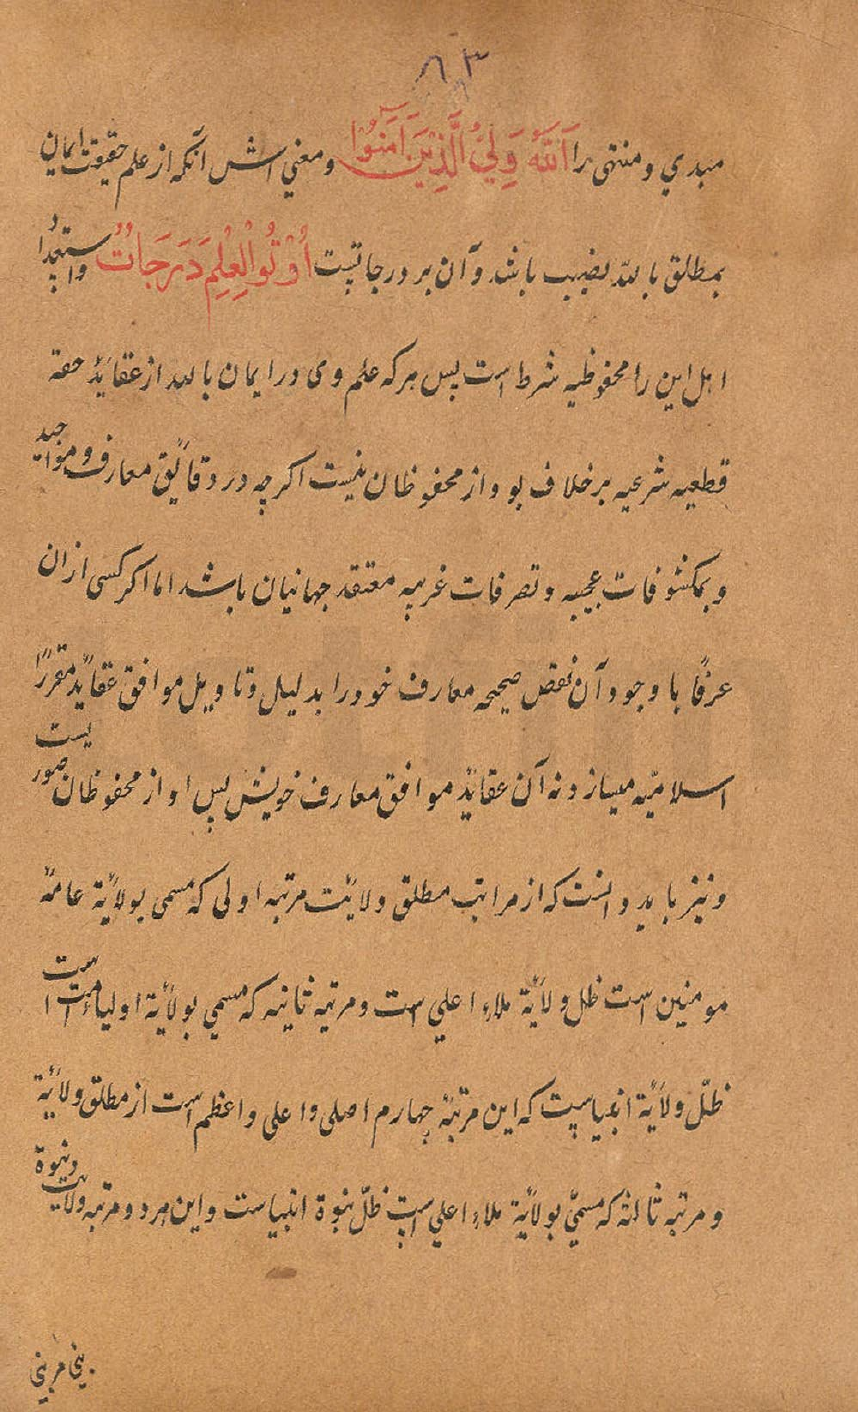 ۸۳
مبدي و منتهی را اَللّٰهُ وَلِيُّ الَّذِيْنَ اٰمَنُوْا ومعني اش آنكه از علم حقیقت ایمان
بمطلق بالله نصیب باشد و آن بر درجاتیست اُوْتُوالْعِلْمَ دَرَجَاتٍ واستعداد
اهل این را محفوظیه شرط است پس هر که علم وی در ایمان بالله از عقاید حقه
قطعیه شرعیه بر خلاف بود از محفوظان نیست اکرچه در دقایق معارف و مواجید
و بمکشوفات عجیبه و تصرفات غریبه معتقد جهانیان باشد اما اکر کسی ازان
عرفا با وجود آن نقض صحیحه معارف خود را بدلیل و تاویل موافق عقاید مقررا
اسلامیه میسازد نه آن عقاید موافق معارف خویش پس او از محفوظان صور یست
و نیز باید دانست که از مراتب مطلق ولایت مرتبه اولی که مسمی بولایة عامه
مومنین است ظل ولایة ملاء اعلی است و مرتبه ثانیه که مسمی بولایة اولیاء امت است
ظلّ ولایة انبیاست که این مرتبهٔ چهارم اصلی و اعلی و اعظم است از مطلق ولایة
و مرتبه ثالثه که مسمیّ بولایة ملاء اعلی است ظلّ نبوة انبیاست و این هر دو مرتبه ولایت و نبوة